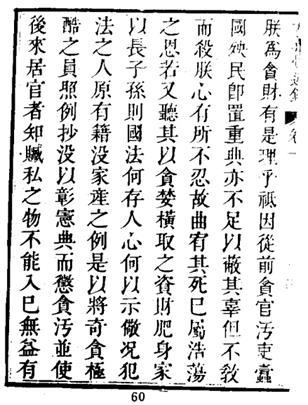 朕為貪財有是理乎祗因從前貪官汚吏蠹
國殃民卽置重典亦不足以蔽其辜但不教
而殺朕心有所不忍故曲宥其死已屬浩蕩
之恩若又聽其以貪婪橫取之資財肥身家
以長子孫則國法何存人心何以示儆况犯
法之人原有籍没家產之例是以將奇貪極
酷之員照例抄没以彰憲典而懲貪汚並使
後來居官者知贜私之物不能入已無益有
60